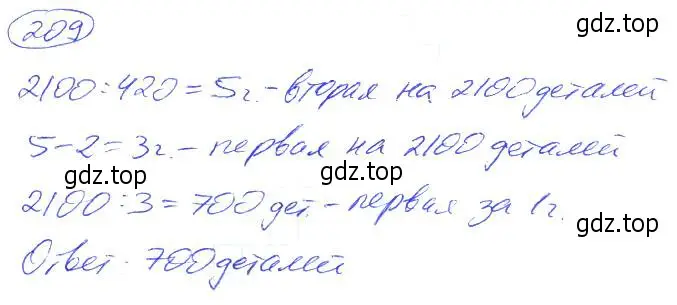 209
gdz.top
2100:420=5ч.-вторая на 2100 деталей
5-2=3ч.-первая на 2100 деталей
gdz.top gdz.top
2100:3=700 дет.-первая за 1ч.
gdz.top
Ответ. 700 деталей
gdz.top